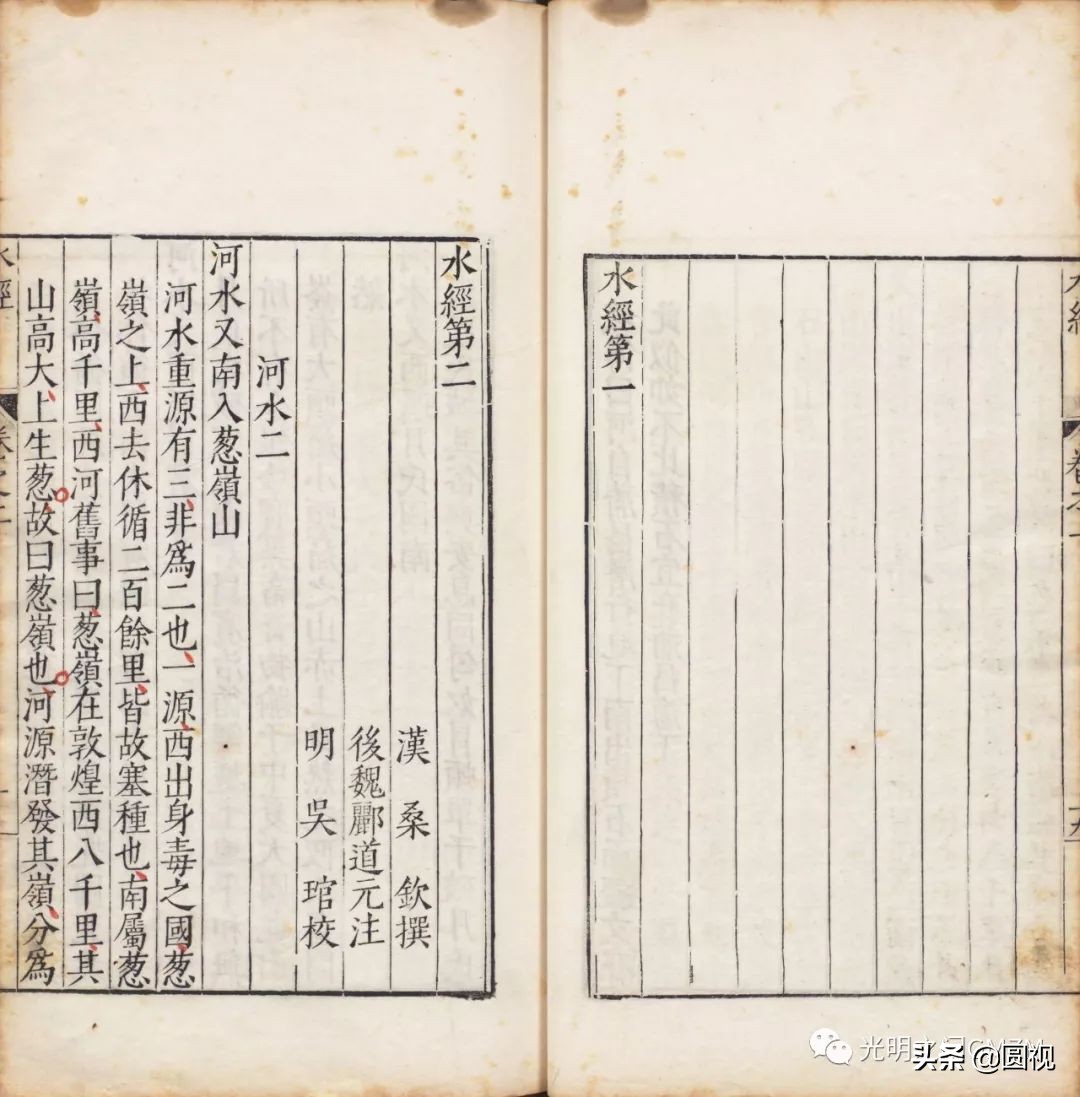 水經第一
水經第二
漢 桑 欽撰
後魏酈道元注
明 吳 琯校
河水二
河水又南入葱嶺山
河水重源有三、非爲二也、一源、西出身毒之國、葱
嶺之上、西去休循二百餘里、皆故塞種也、南屬葱
嶺、高千里、西河舊事曰、葱嶺在敦煌西八千里、其
山高大、上生葱、故曰葱嶺也、河源潛發其嶺、分爲
水經
卷之二
头条 @圆视